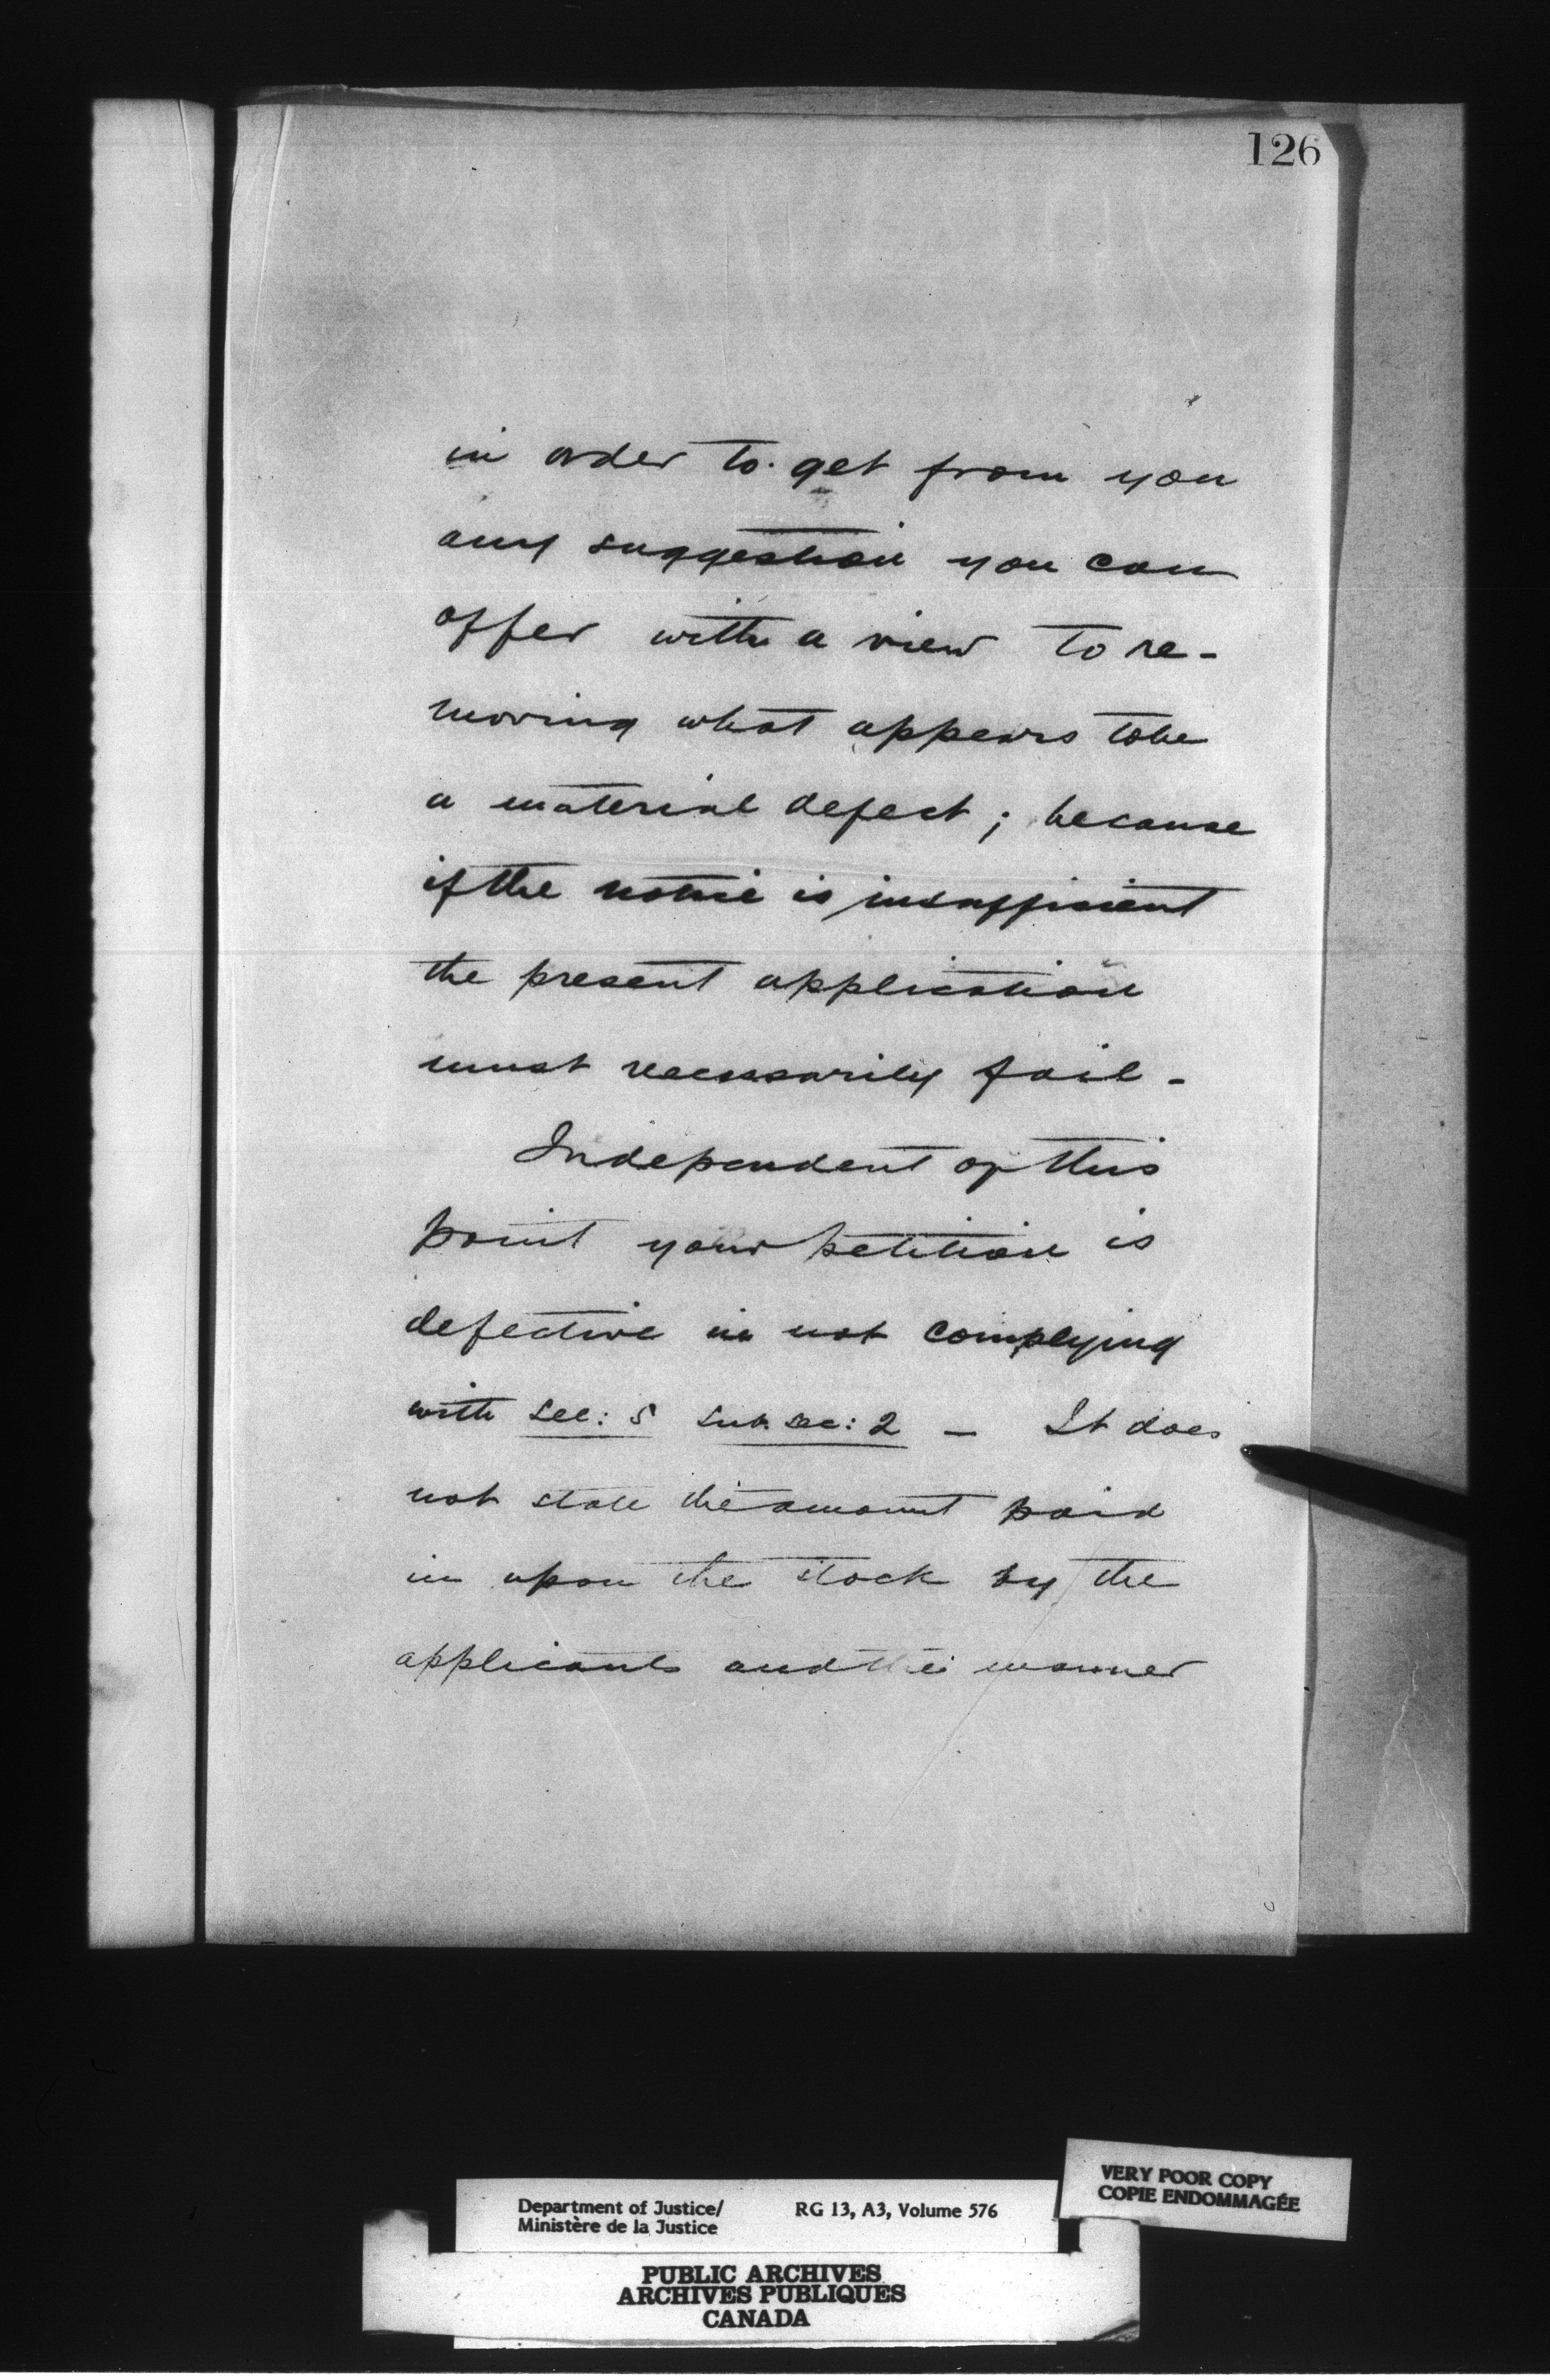 126
in order to get from you
any suggestion you can
offer with a view to re-
moving what appears to be
a material defect; because
if the notice is insufficient
the present application
must necessarily fail -
Independent of this
point your petition is
defective in not complying
with sec: 5 sub. sec: 2 - It does
not state the amount paid
in upon the stock by the
applicants and the manner
VERY POOR COPY
COPIE ENDOMMAGÉE
Department of Justice/ RG 13, A3, Volume 576
Ministère de la Justice
PUBLIC ARCHIVES
ARCHIVES PUBLIQUES
CANADA